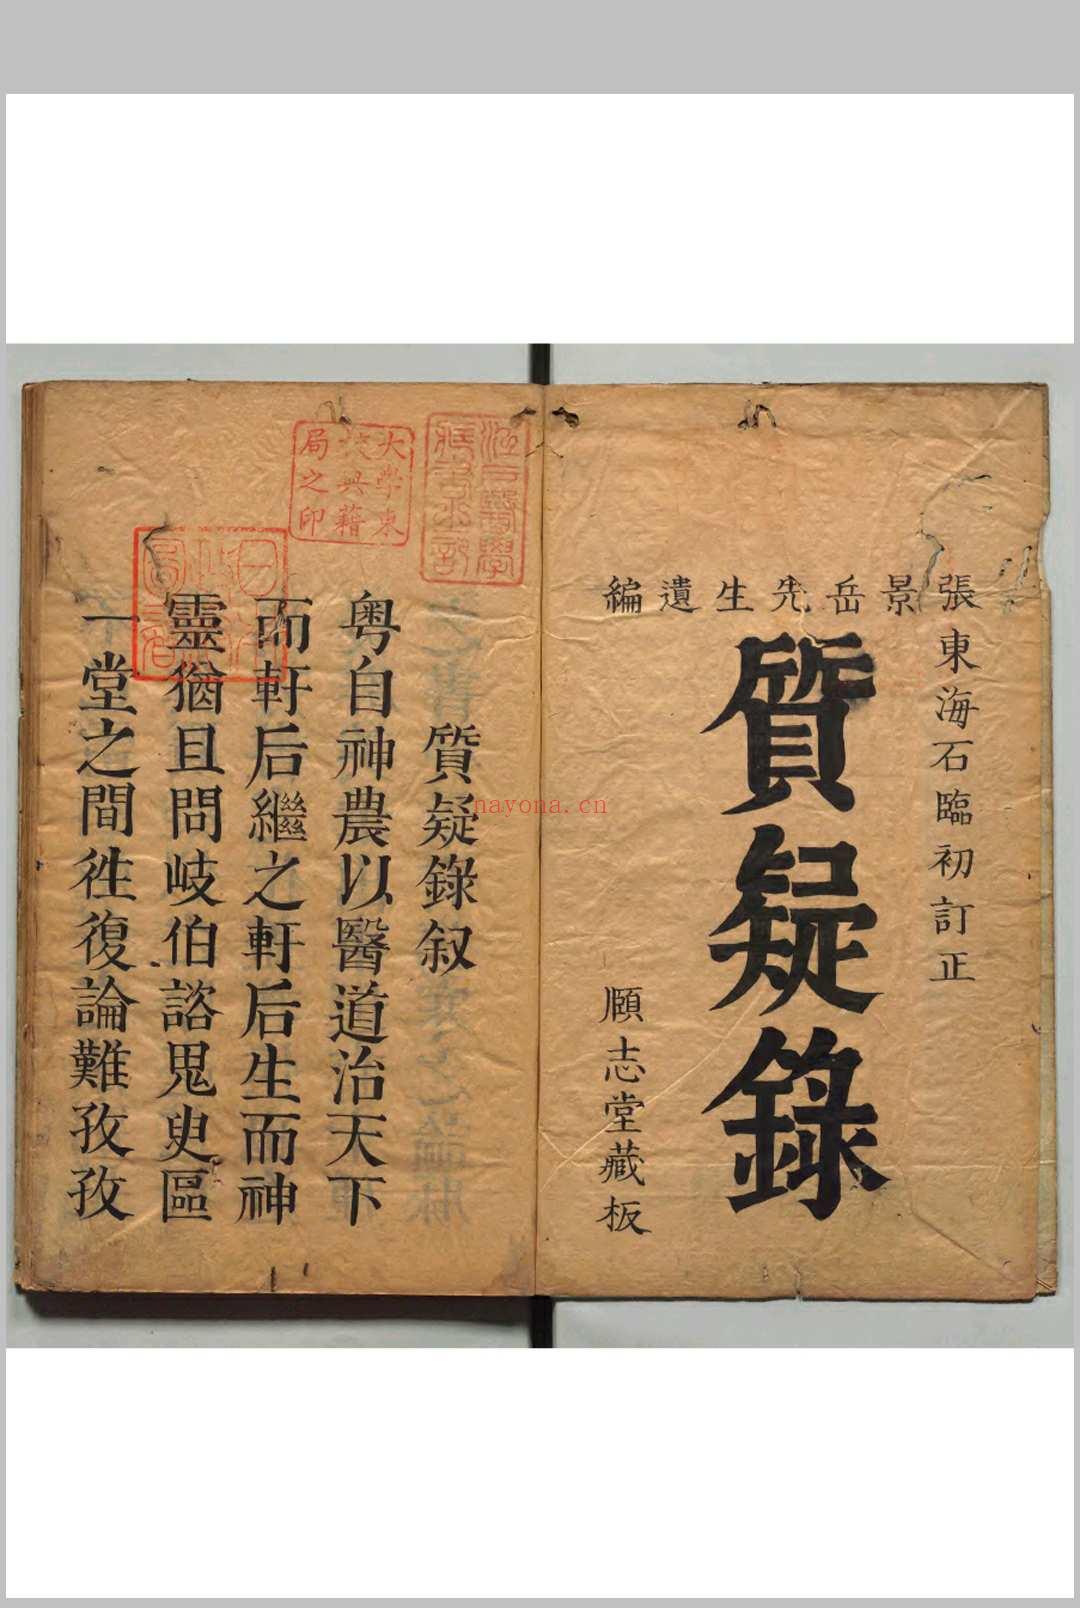 張景岳先生遺編
東海石臨初訂正
質疑錄
頤志堂藏板
江戸醫學藏書之記
大學東校典籍局之印
日本政府圖書
質疑錄叙
粤自神農以醫道治天下
而軒后繼之軒后生而神
靈猶且問岐伯諮鬼臾區
一堂之間徃復論難孜孜
nayona.cn